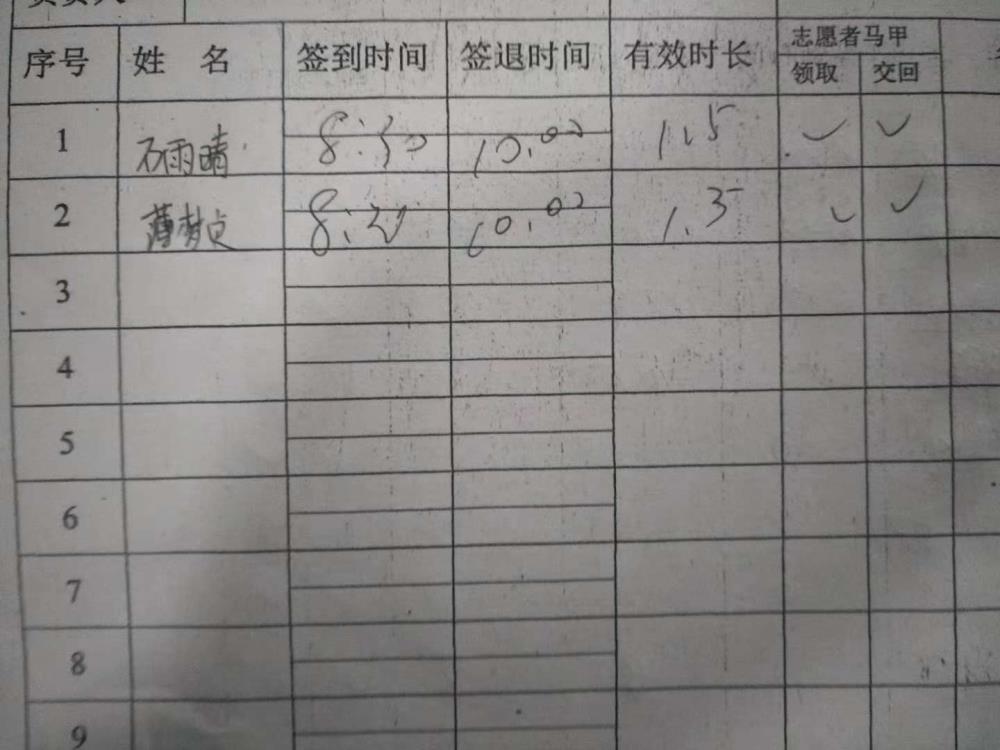 序号 姓 名 签到时间 签退时间 有效时长 志愿者马甲
领取 交回
1 石雨晴 8:30 10:00 1.5 ✓ ✓
2 薄梦 8:30 10:00 1.5 ✓ ✓
3
4
5
6
7
8
9